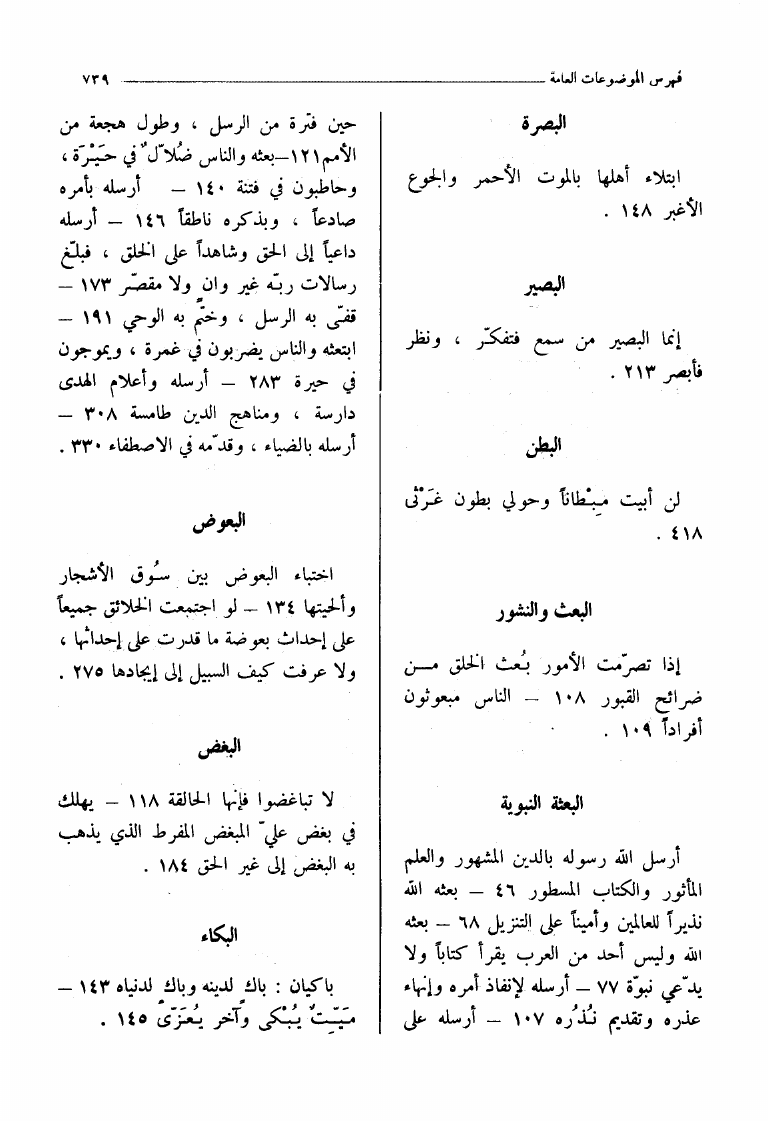 فهرس الموضوعات العامة ٧٣٩
البصرة
ابتلاء أهلها بالموت الأحمر والجوع
الأغبر ١٤٨ .
البصير
إنما البصير من سمع فتفكّر ، ونظر
فأبصر ٢١٣ .
البطن
لن أبيت مِبْطاناً وحولي بطون غَرْثى
٤١٨ .
البعث والنشور
إذا تصرّمت الأمور بُعث الخلق مـن
ضرائح القبور ١٠٨ – الناس مبعوثون
أفراداً ١٠٩ .
البعثة النبوية
أرسل الله رسوله بالدين المشهور والعلم
المأثور والكتاب المسطور ٤٦ – بعثه الله
نذيراً للعالمين وأميناً على التنزيل ٦٨ – بعثه
الله وليس أحد من العرب يقرأ كتاباً ولا
يدّعي نبوّة ٧٧ – أرسله لإنفاذ أمره وإنهاء
عذره وتقديم نُذُره ١٠٧ – أرسله على
حين فترة من الرسل ، وطول هجعة من
الأمم١٢١–بعثه والناس ضُلاّلٌ في حَيْرَة ،
وحاطبون في فتنة ١٤٠ – أرسله بأمره
صادعاً ، وبذكره ناطقاً ١٤٦ – أرسله
داعياً إلى الحق وشاهداً على الخلق ، فبلّغ
رسالات ربّه غير وانٍ ولا مقصّر ١٧٣ –
قفّى به الرسل ، وختم به الوحي ١٩١ –
ابتعثه والناس يضربون في غمرة ، ويموجون
في حيرة ٢٨٣ – أرسله وأعلام الهدى
دارسة ، ومناهج الدين طامسة ٣٠٨ –
أرسله بالضياء ، وقدّمه في الاصطفاء ٣٣٠ .
البعوض
اختباء البعوض بين سُوق الأشجار
وألحيتها ١٣٤ – لو اجتمعت الخلائق جميعاً
على إحداث بعوضة ما قدرت على إحداثها ،
ولا عرفت كيف السبيل إلى إيجادها ٢٧٥ .
البغض
لا تباغضوا فإنها الحالقة ١١٨ – يهلك
في بغض عليّ المبغض المفرط الذي يذهب
به البغض إلى غير الحق ١٨٤ .
البكاء
باكيان : باكٍ لدينه وباكٍ لدنياه ١٤٣ –
مَيّتٌ يُبْكى وآخر يُعَزّى ١٤٥ .